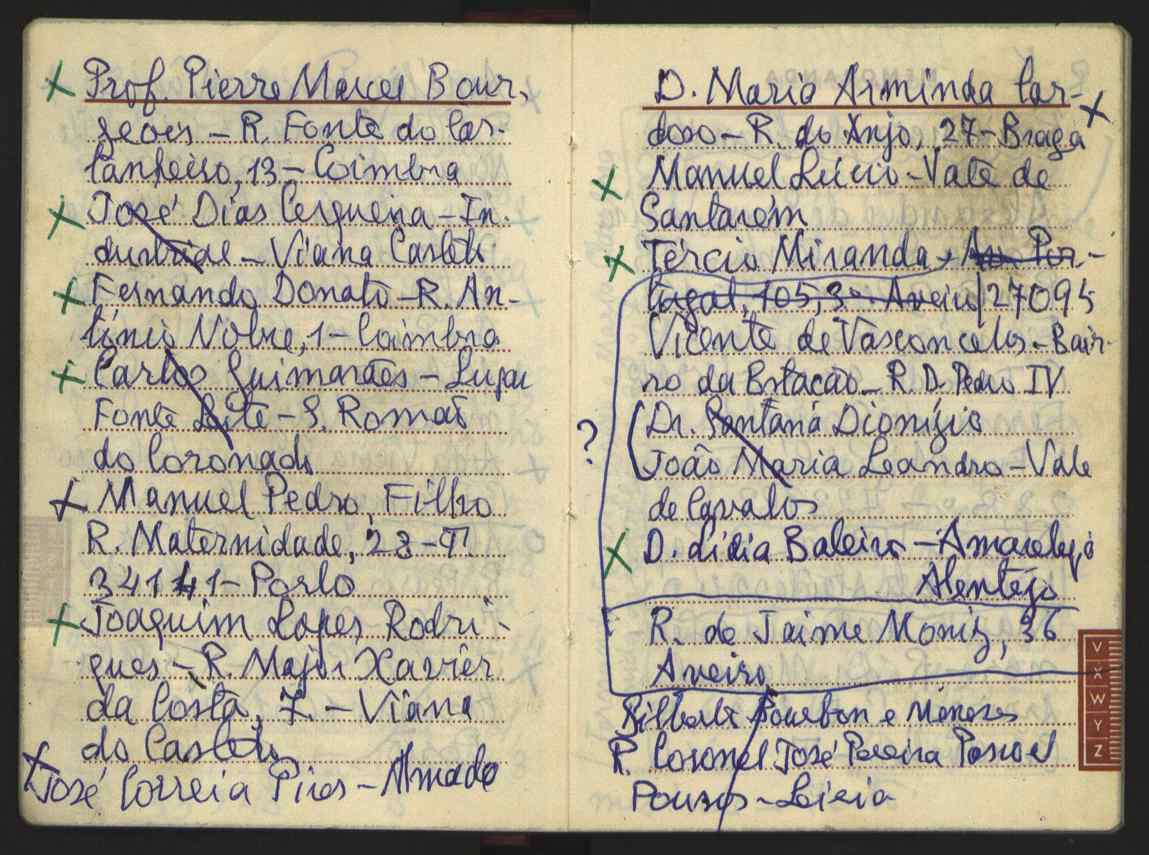 x Prof Pierre Marcel Bour-
geois – R. Fonte do Cas-
tanheiro, 13 – Coimbra
x José Dias Cerqueira – In-
dustrial – Viana Castelo
x Fernando Donato – R. An-
tónio Nobre, 1 – Coimbra
x Carlos Guimarães – Lugar
Fonte Leite – S. Romão
do Coronado
x Manuel Pedro, Filho
R. Maternidade, 23 – T.
34141 – Porto
x Joaquim Lopes Rodri-
gues – R. Major Xavier
da Costa, 7. – Viana
do Castelo
x José Correia Pires – Almada
D. Maria Arminda Car-
doso – R. do Anjo, 27 – Braga x
x Manuel Lúcio – Vale de
Santarém
x Tércio Miranda, Av. Por-
tugal, 105, 3º Aveiro | 27095
Vicente de Vasconcelos – Bair-
ro da Estação – R. D. Pedro IV
? Dr. Santana Dionísio
João Maria Leandro – Vale
de Cavalos
x D. Lídia Baleiro – Amareleja
Alentejo
R. de Jaime Moniz, 36
Aveiro
Gilberto Bourbon e Meneses
R. Coronel José Pereira Pascoal
Pousos – Leiria
V
X
W
Y
Z